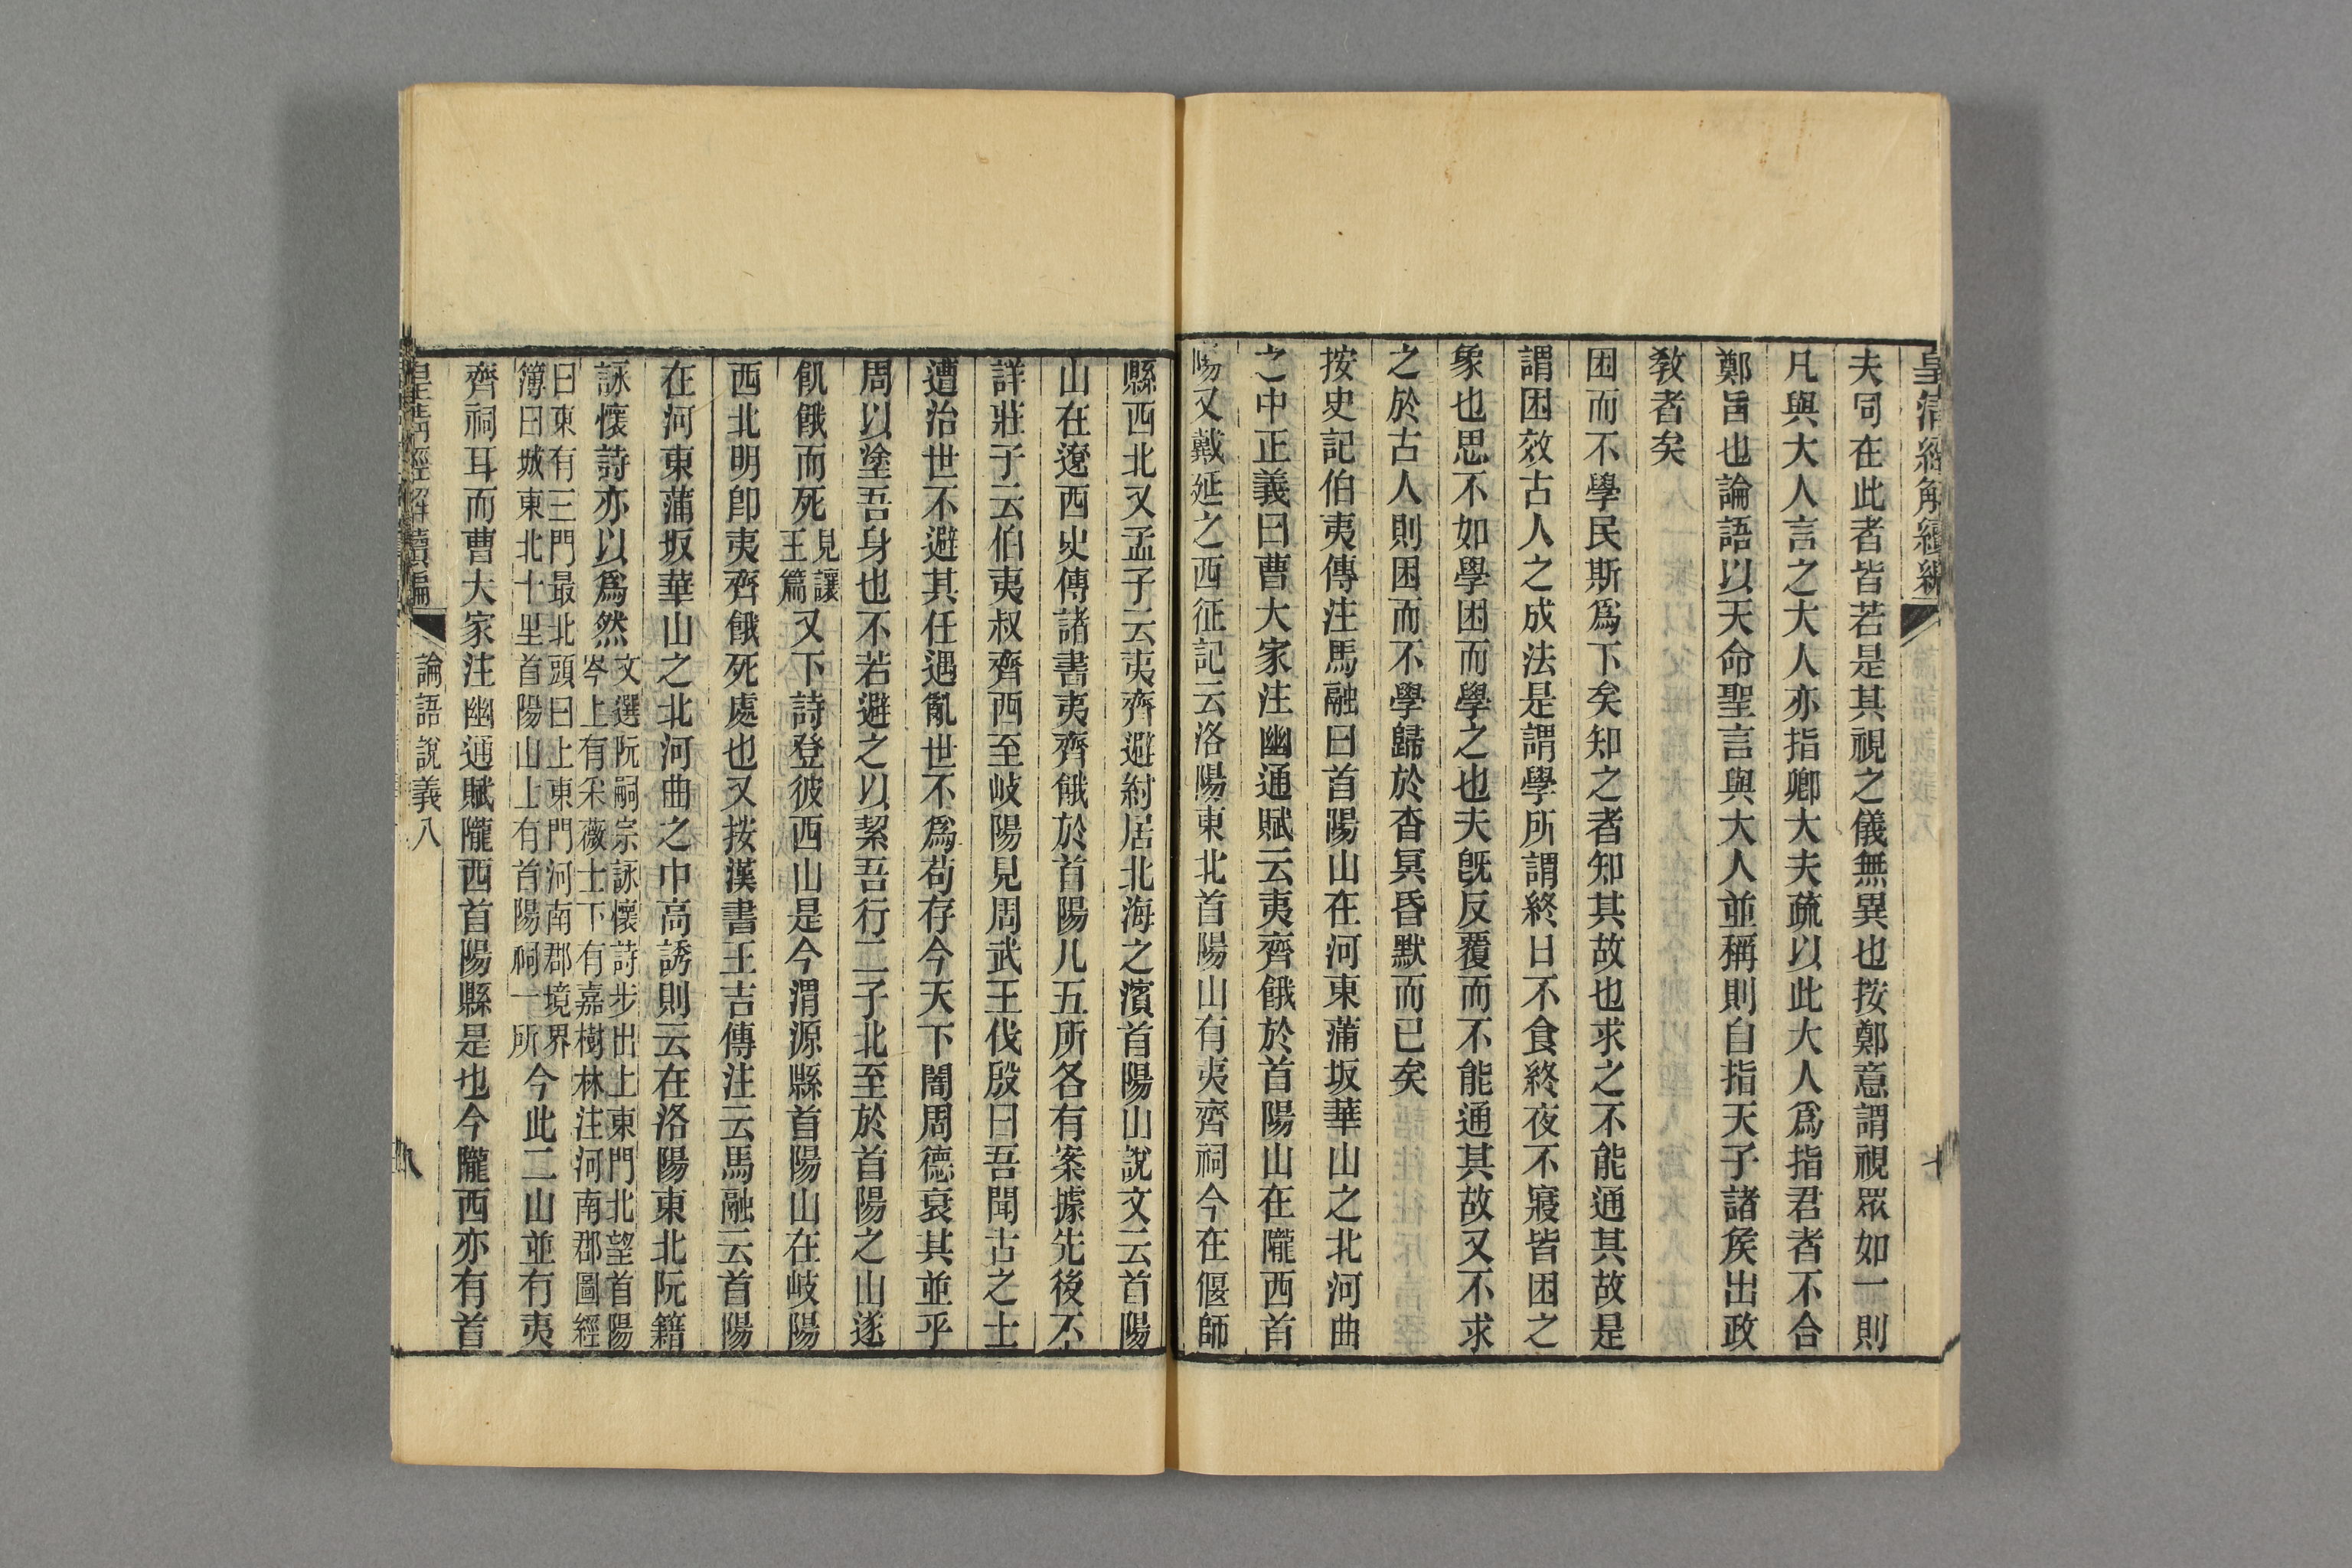 皇清經解續編
七
夫同在此者皆若是其視之儀無異也按鄭意謂視眾如一則
凡與大人言之大人亦指卿大夫疏以此大人爲指君者不合
鄭旨也論語以天命聖言與大人並稱則自指天子諸矦出政
敎者矣
困而不學民斯爲下矣知之者知其故也求之不能通其故是
謂困效古人之成法是謂學所謂終日不食終夜不寢皆困之
象也思不如學困而學之也夫旣反覆而不能通其故又不求
之於古人則困而不學歸於杳冥昏默而已矣
按史記伯夷傳注馬融曰首陽山在河東蒲坂華山之北河曲
之中正義曰曹大家注幽通賦云夷齊餓於首陽山在隴西首
陽又戴延之西征記云洛陽東北首陽山有夷齊祠今在偃師
縣西北又孟子云夷齊避紂居北海之濱首陽山說文云首陽
山在遼西史傳諸書夷齊餓於首陽凡五所各有案據先後不
詳莊子云伯夷叔齊西至岐陽見周武王伐殷曰吾聞古之士
遭治世不避其任遇亂世不爲苟存今天下闇周德衰其並乎
周以塗吾身也不若避之以絜吾行二子北至於首陽之山遂
飢餓而死見讓王篇又下詩登彼西山是今渭源縣首陽山在岐陽
西北明卽夷齊餓死處也又按漢書王吉傳注云馬融云首陽
在河東蒲坂華山之北河曲之中高誘則云在洛陽東北阮籍
詠懷詩亦以爲然文選阮嗣宗詠懷詩步出上東門北望首陽岑上有采薇士下有嘉樹林注河南郡圖經
曰東有三門最北頭曰上東門河南郡境界簿曰城東北十里首陽山上有首陽祠一所今此二山並有夷
齊祠耳而曹大家注幽通賦隴西首陽縣是也今隴西亦有首
皇淸經解續編
論語說義八
八